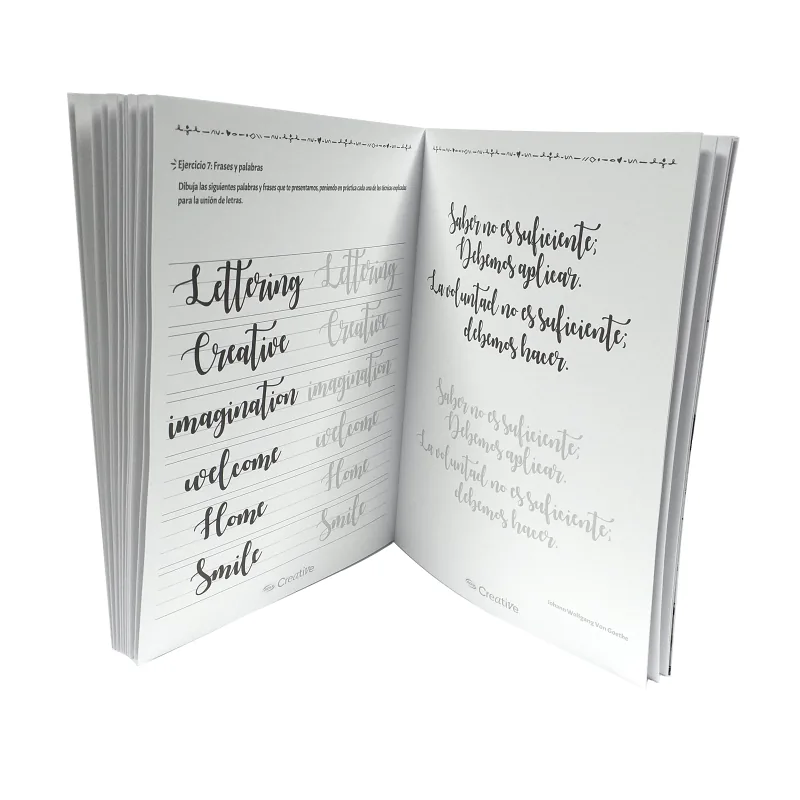 Ejercicio 7: Frases y palabras
Dibuja las siguientes palabras y frases que te presentamos, poniendo en práctica cada una de las técnicas explicadas
para la unión de letras.
Lettering Lettering
Creative Creative
imagination imagination
welcome welcome
Home Home
Smile Smile
Creative
Saber no es suficiente;
Debemos aplicar.
La voluntad no es suficiente;
debemos hacer.
Saber no es suficiente;
Debemos aplicar.
La voluntad no es suficiente;
debemos hacer.
Johann Wolfgang Von Goethe
Creative